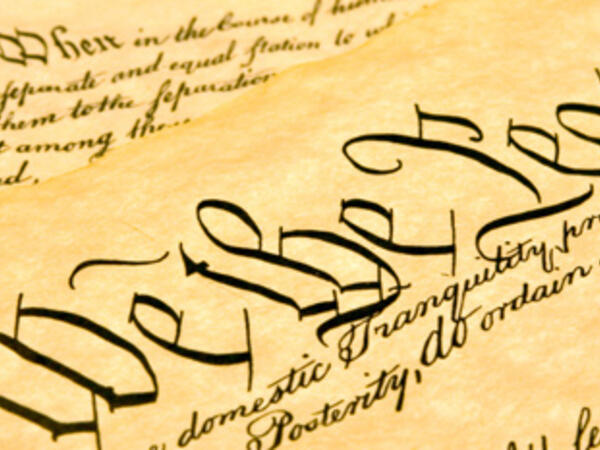 When in the Course of huma
separate and equal station to wh
them to the separation
among these
We the Peo
domestic Tranquility, pr
Posterity, do ordain